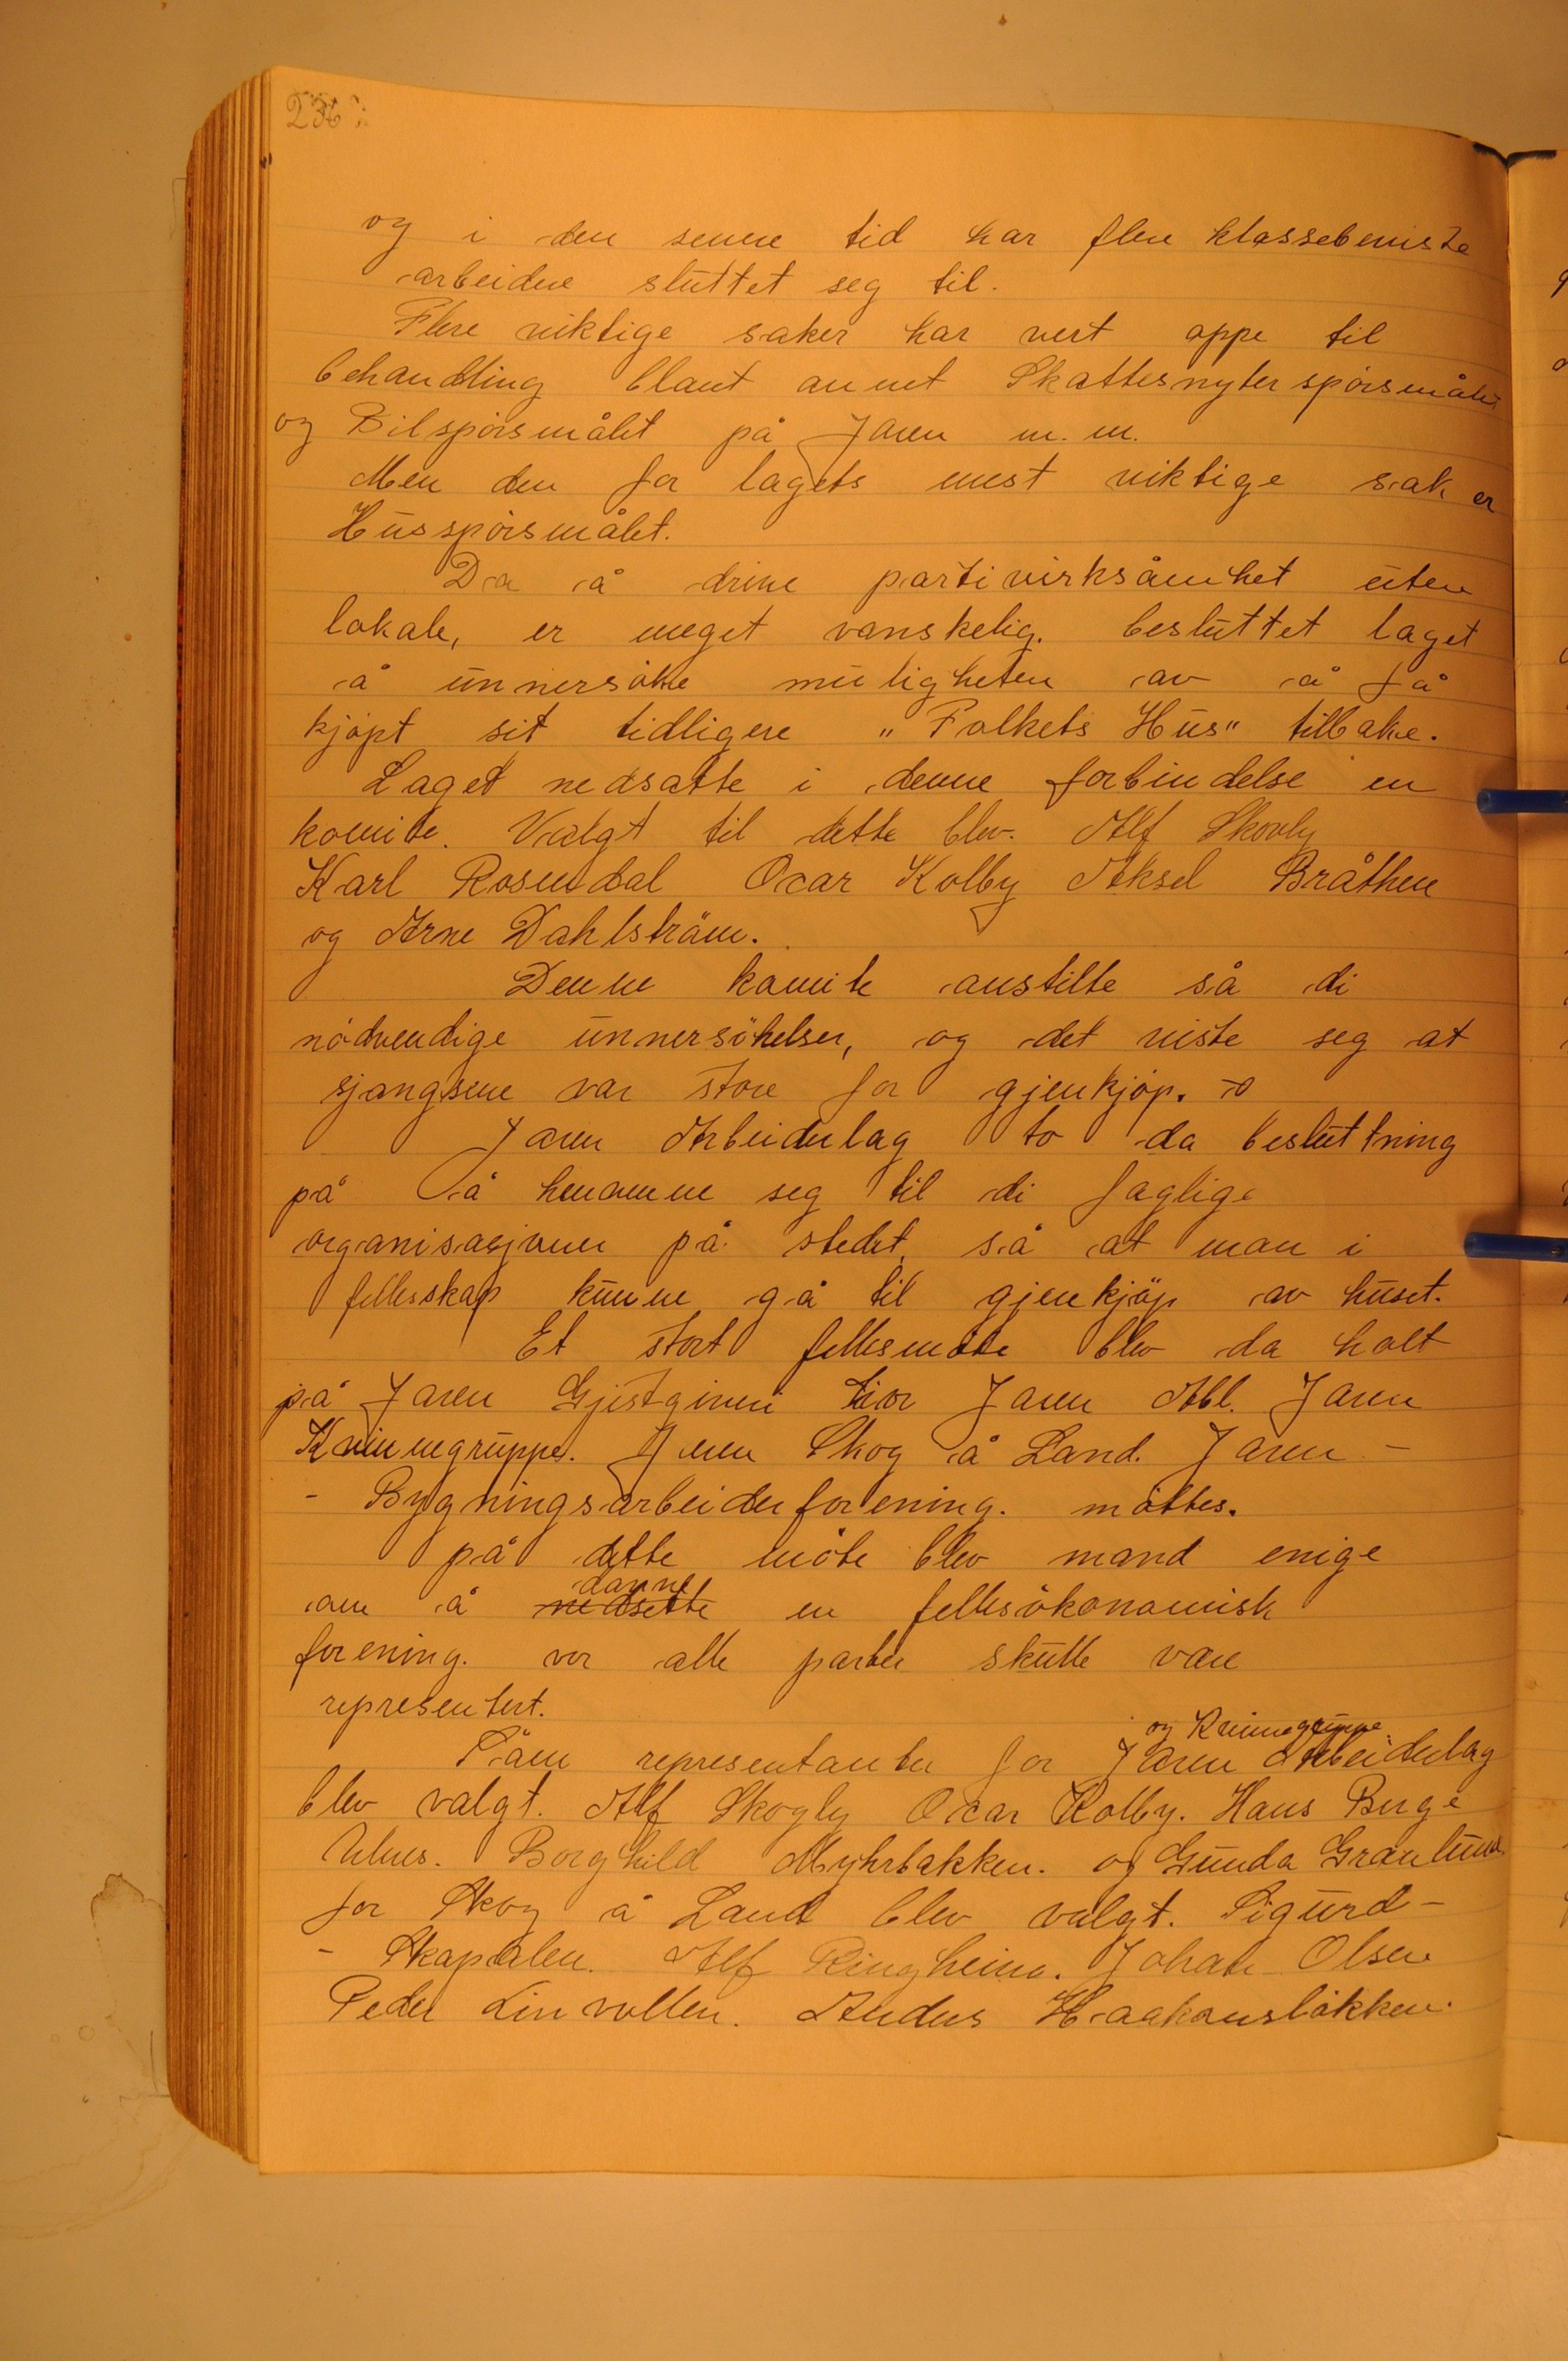 236
og i den senere tid har flere klassebeviste
arbeidere sluttet seg til.
Flere viktige saker har vert oppe til
behandling blant annet Skattesnyterspörsmålet
og Bilspörsmålet på Jaren m.m.
Men den for lagets mest viktige sak er
Husspörsmålet.
Da å drive partivirksåmhet uten
lokale, er meget vanskelig. besluttet laget
å unnersöke muligheten av å få
kjöpt sit tidligere "Folkets Hus" tilbake.
Laget nedsatte i denne forbindelse en
komite. Valgt til dette blev. Alf Skogly
Karl Rosendal Oscar Kolby Aksel Bråthen
og Arne Dahlström.
Denne komite anstilte så di
nödvendige unnersökelser, og det viste seg at
sjangsene var store for gjenkjöp.
Jaren Arbeiderlag to da besluttning
på å henvenne seg til di faglige
organisasjoner på stedet, så at man i
fellesskap kunne gå til gjenkjöp av huset.
Et stort fellesmöte blev da holt
på Jaren Gjestgiveri hvor Jaren Abl. Jaren
Kvinnegruppe. Jaren Skog å Land. Jaren -
- Bygningsarbeiderforening. möttes.
på dette möte blev mand enige
om å nedsette danne en fellesökonomisk
forening. vor alle parter skulle vare
representert.
Såm representanter for Jaren Arbeiderlag og Kvinnegruppe.
blev valgt. Alf Skogly Oscar Kolby. Hans Berge
Borghild Myhrbakken. og Gunda Granlund.
for Skog å Land blev valgt. Sigurd -
- Skapalen. Alf Ringheim. Johan Olsen
Peder Linvollen. Anders Haakonslökken.